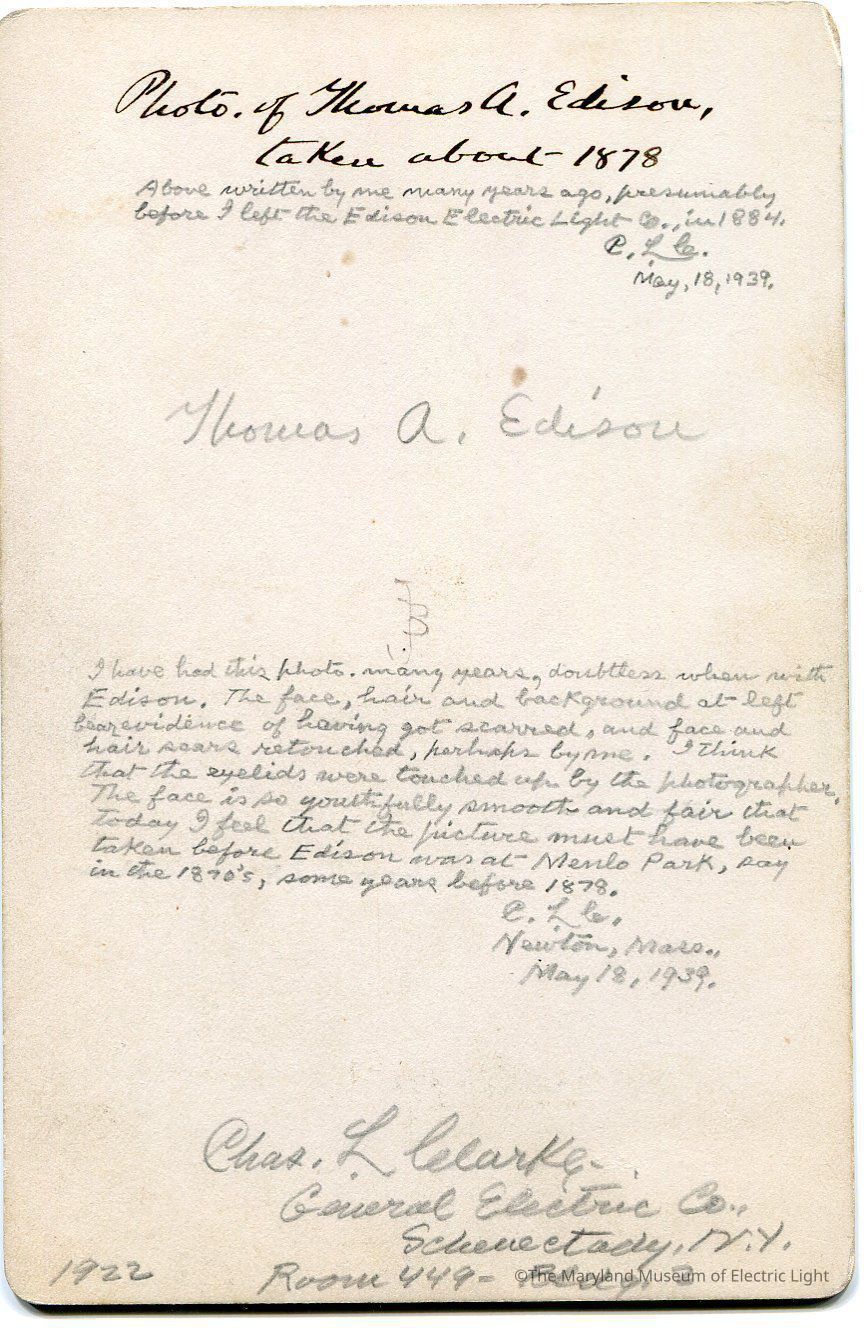 Photo. of Thomas A. Edison,
taken about 1878
Above written by me many years ago, presumably
before I left the Edison Electric Light Co., in 1884.
C. L. C.
May, 18, 1939.
Thomas A. Edison
I have had this photo. many years, doubtless when with
Edison. The face, hair and background at left
bear evidence of having got scarred, and face and
hair scars retouched, perhaps by me. I think
that the eyelids were touched up by the photographer.
The face is so youthfully smooth and fair that
today I feel that the picture must have been
taken before Edison was at Menlo Park, say
in the 1870's, some years before 1878.
C. L. C.
Newton, Mass.,
May 18, 1939.
Chas. L. Clarke
General Electric Co.,
Schenectady, N.Y.
1922 Room 449-
©The Maryland Museum of Electric Light